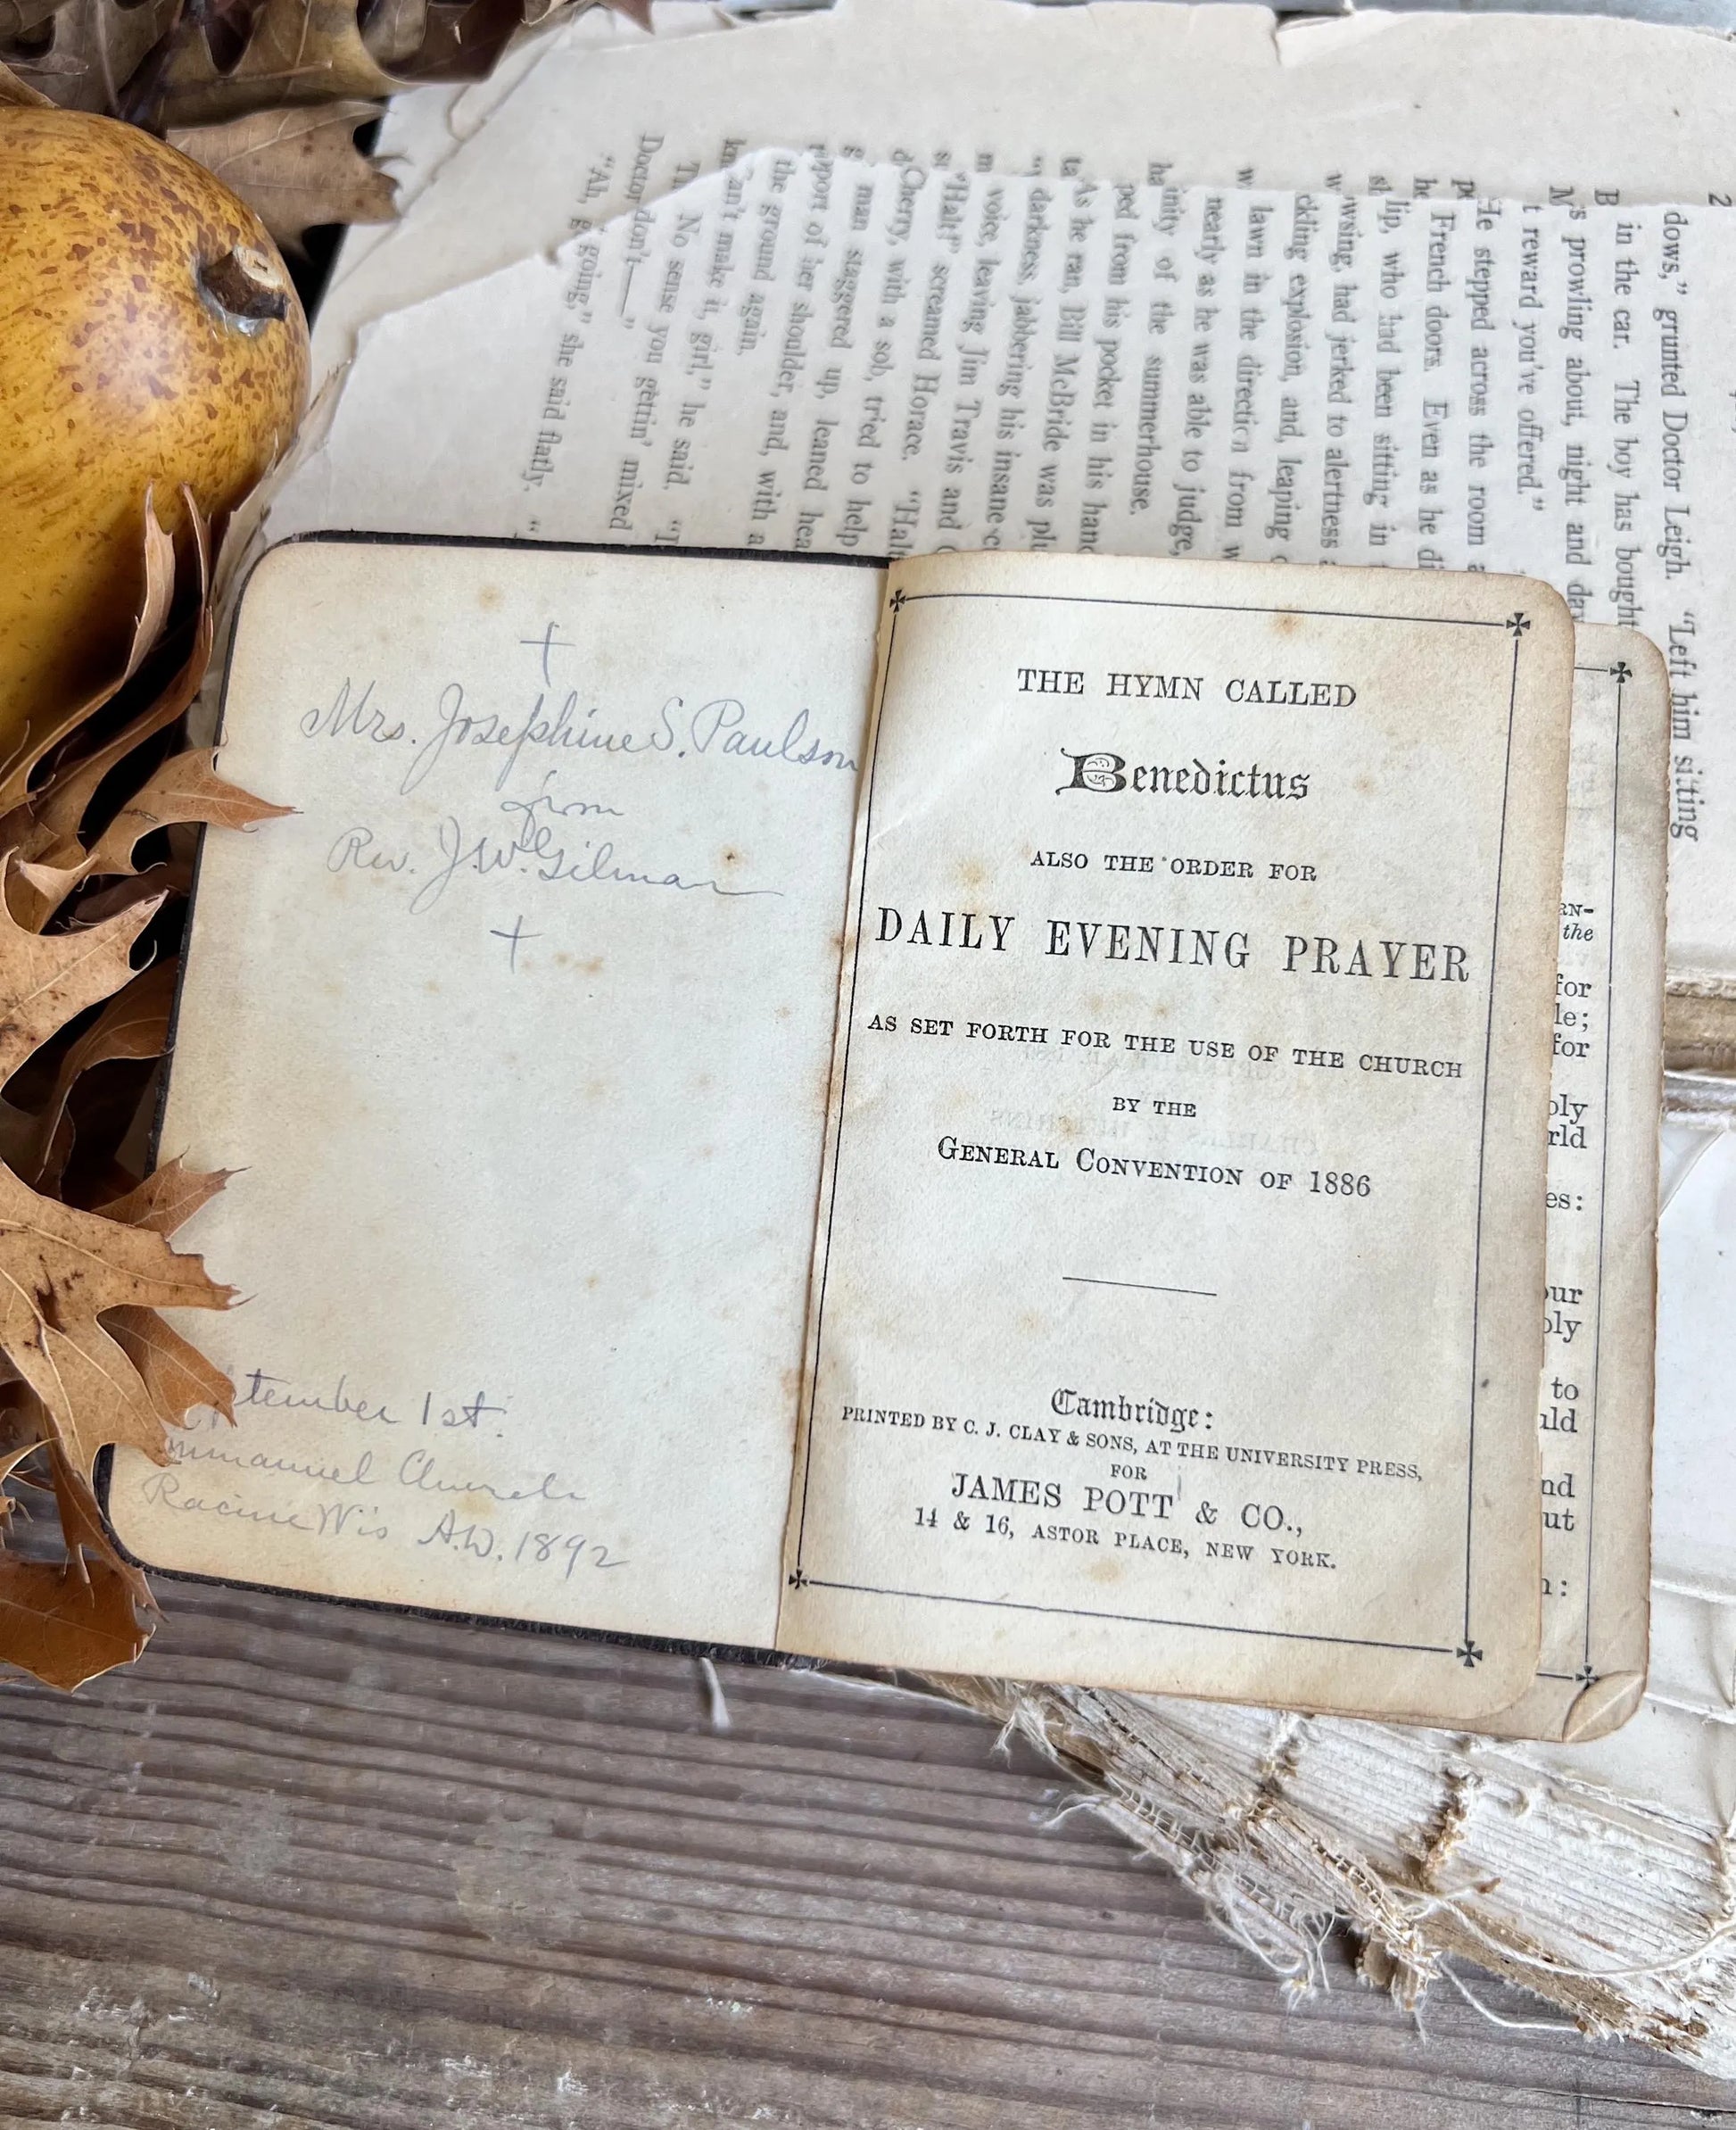 Mrs. Josephine S. Paulson
from
Rev. J.W. Gilman
tember 1st.
mmanuel Church
Racine Wis A.D. 1892
THE HYMN CALLED
Benedictus
ALSO THE ORDER FOR
DAILY EVENING PRAYER
AS SET FORTH FOR THE USE OF THE CHURCH
BY THE
GENERAL CONVENTION OF 1886
Cambridge:
PRINTED BY C. J. CLAY & SONS, AT THE UNIVERSITY PRESS,
FOR
JAMES POTT & CO.,
14 & 16, ASTOR PLACE, NEW YORK.
RN-
the
for
le;
for
oly
rld
es:
our
oly
to
uld
nd
ut
n:
2
dows," grunted Doctor Leigh. "Left him sitting
in the car. The boy has bought
s prowling about, night and day
t reward you've offered."
He stepped across the room a
French doors. Even as he di
lip, who had been sitting in
wsing, had jerked to alertness a
ckling explosion, and, leaping
lawn in the direction from w
nearly as he was able to judge,
inity of the summerhouse.
ped from his pocket in his hand
As he ran, Bill McBride was plu
darkness, jabbering his insane c
voice, leaving Jim Travis and
"Halt!" screamed Horace. "Halt
Cherry, with a sob, tried to help
man staggered up, leaned hea
port of her shoulder, and, with a
the ground again.
can't make it, girl," he said. "I
No sense you gettin' mixed
Doctor don't——"
"Ah, g going," she said flatly. "